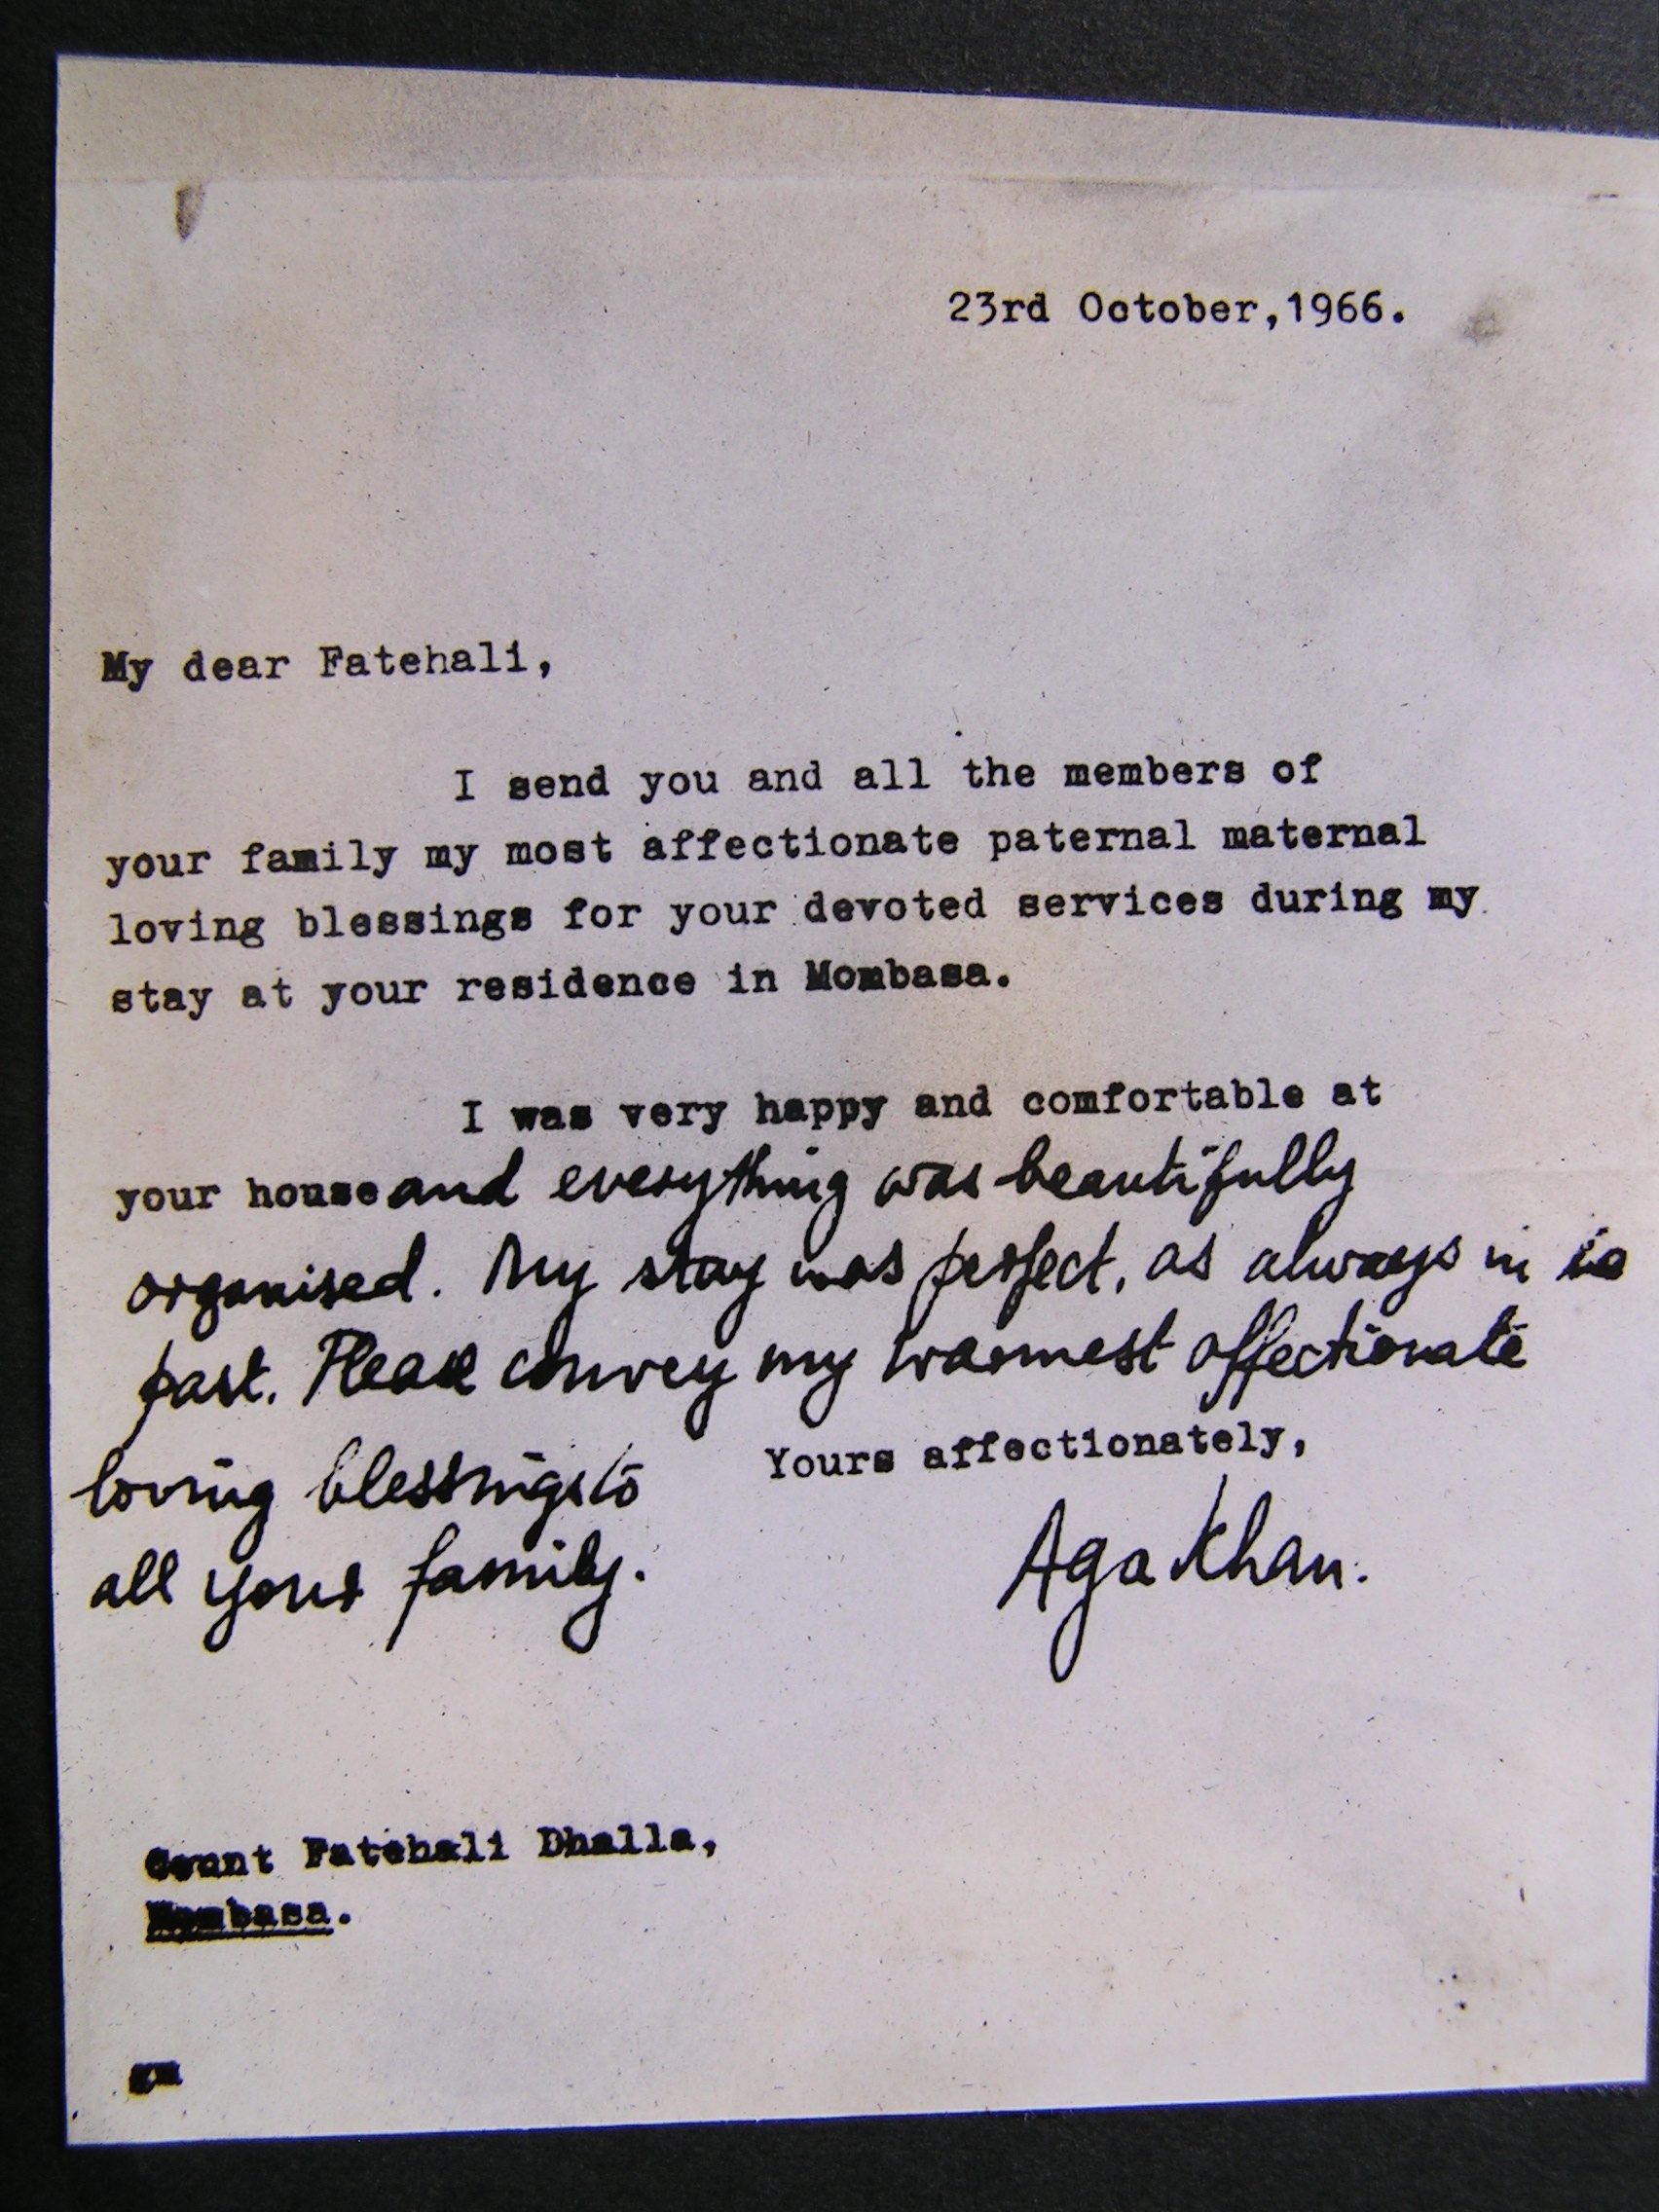 23rd October, 1966.
My dear Fatehali,
I send you and all the members of
your family my most affectionate paternal maternal
loving blessings for your devoted services during my
stay at your residence in Mombasa.
I was very happy and comfortable at
your house and everything was beautifully
organised. My stay was perfect, as always in
past. Please convey my warmest affectionate
loving blessings to
all your family.
Yours affectionately,
Aga Khan.
Count Fatehali Dhalla,
Mombasa.